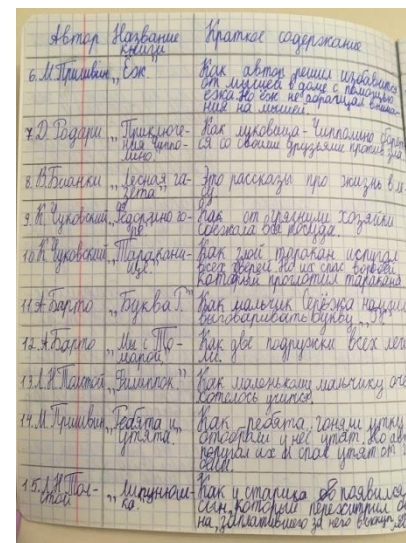 Автор Название книги Краткое содержание
6. М. Пришвин „Ёж." Как автор решил избавиться
от мышей в доме с помощью
ежа. Но ёж не обращал внима-
ния на мышей.
7. Д. Родари „Приключе- Как луковица-Чипполино борет
ния Чиппо- ся со своими друзьями против зла.
лино"
8. В. Бианки „Лесная га- Это рассказы про жизнь в ле-
зета" су
9. К. Чуковский „Федорино го- Как от грязнули хозяйки
ре" сбежала вся посуда.
10. К. Чуковский „Таракани- Как злой таракан испугал
ще." всех зверей. Но их спас воробей,
который проглотил таракана
11. А. Барто „Буква Р." Как мальчик Серёжа научил
выговаривать букву „Р"
12. А. Барто „Мы с Та- Как две подружки всё
марой"
13. Л. Н. Толстой „Филиппок." Как маленькому мальчику оче
хотелось учиться.
14. М. Пришвин „Ребята и Как ребята гоняли утку
утята. отобрали у неё утят. Но авт
и спас утят от
15. Л. Н. Тол- „Липунюш- Как у старика появился
стой ка." сын, который перехитрил
на, заплатившего за него выкуп